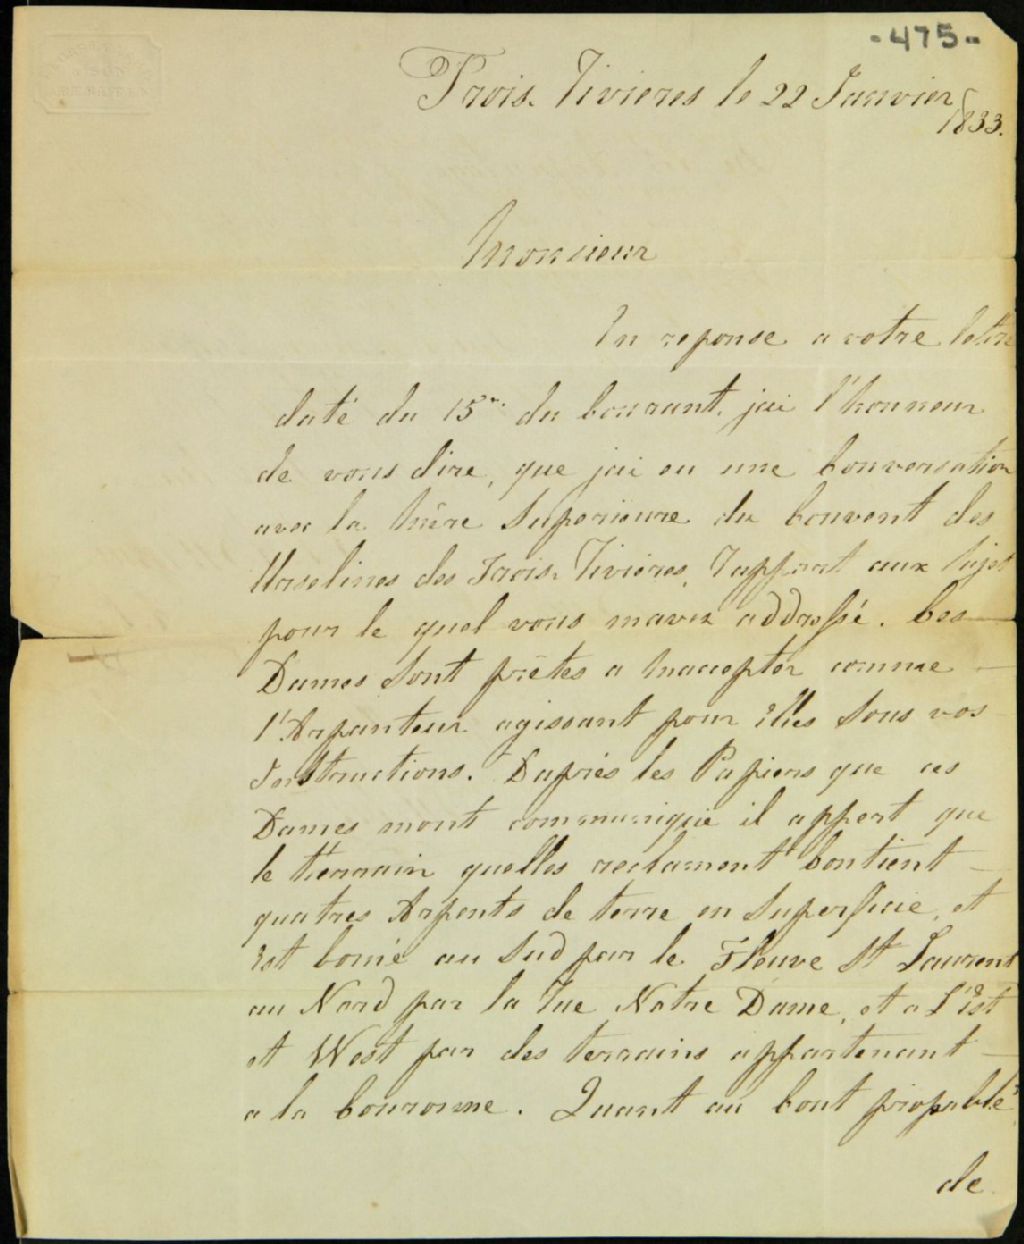 -475-
Trois Rivieres le 22 Janvier
1833.
Monsieur
En reponse a votre lettre
daté du 15me du Courrant, jai l'honneur
de vous dire, que jai eu une Conversation
avec la Mère Superieure du Couvent des
Urselines des Trois-Rivieres, Rapport aux Sujet
pour le quel vous mavez addressé. Ces
Dames Sont prêtes a maccepter comme
l'Arpanteur agissant pour Elles Sous vos
Instructions. Daprès les Papiers que ces
Dames mont communiqué il appert que
le terrain quelles reclament Contient
quatres Arpents de terre en Superficie, et
Est borné au Sud par le Fleuve St Laurent
au Nord par la Rue Notre Dame, et a L'Est
et West par des terrains appartenant
a la Couronne. Quant au Cout probable
de